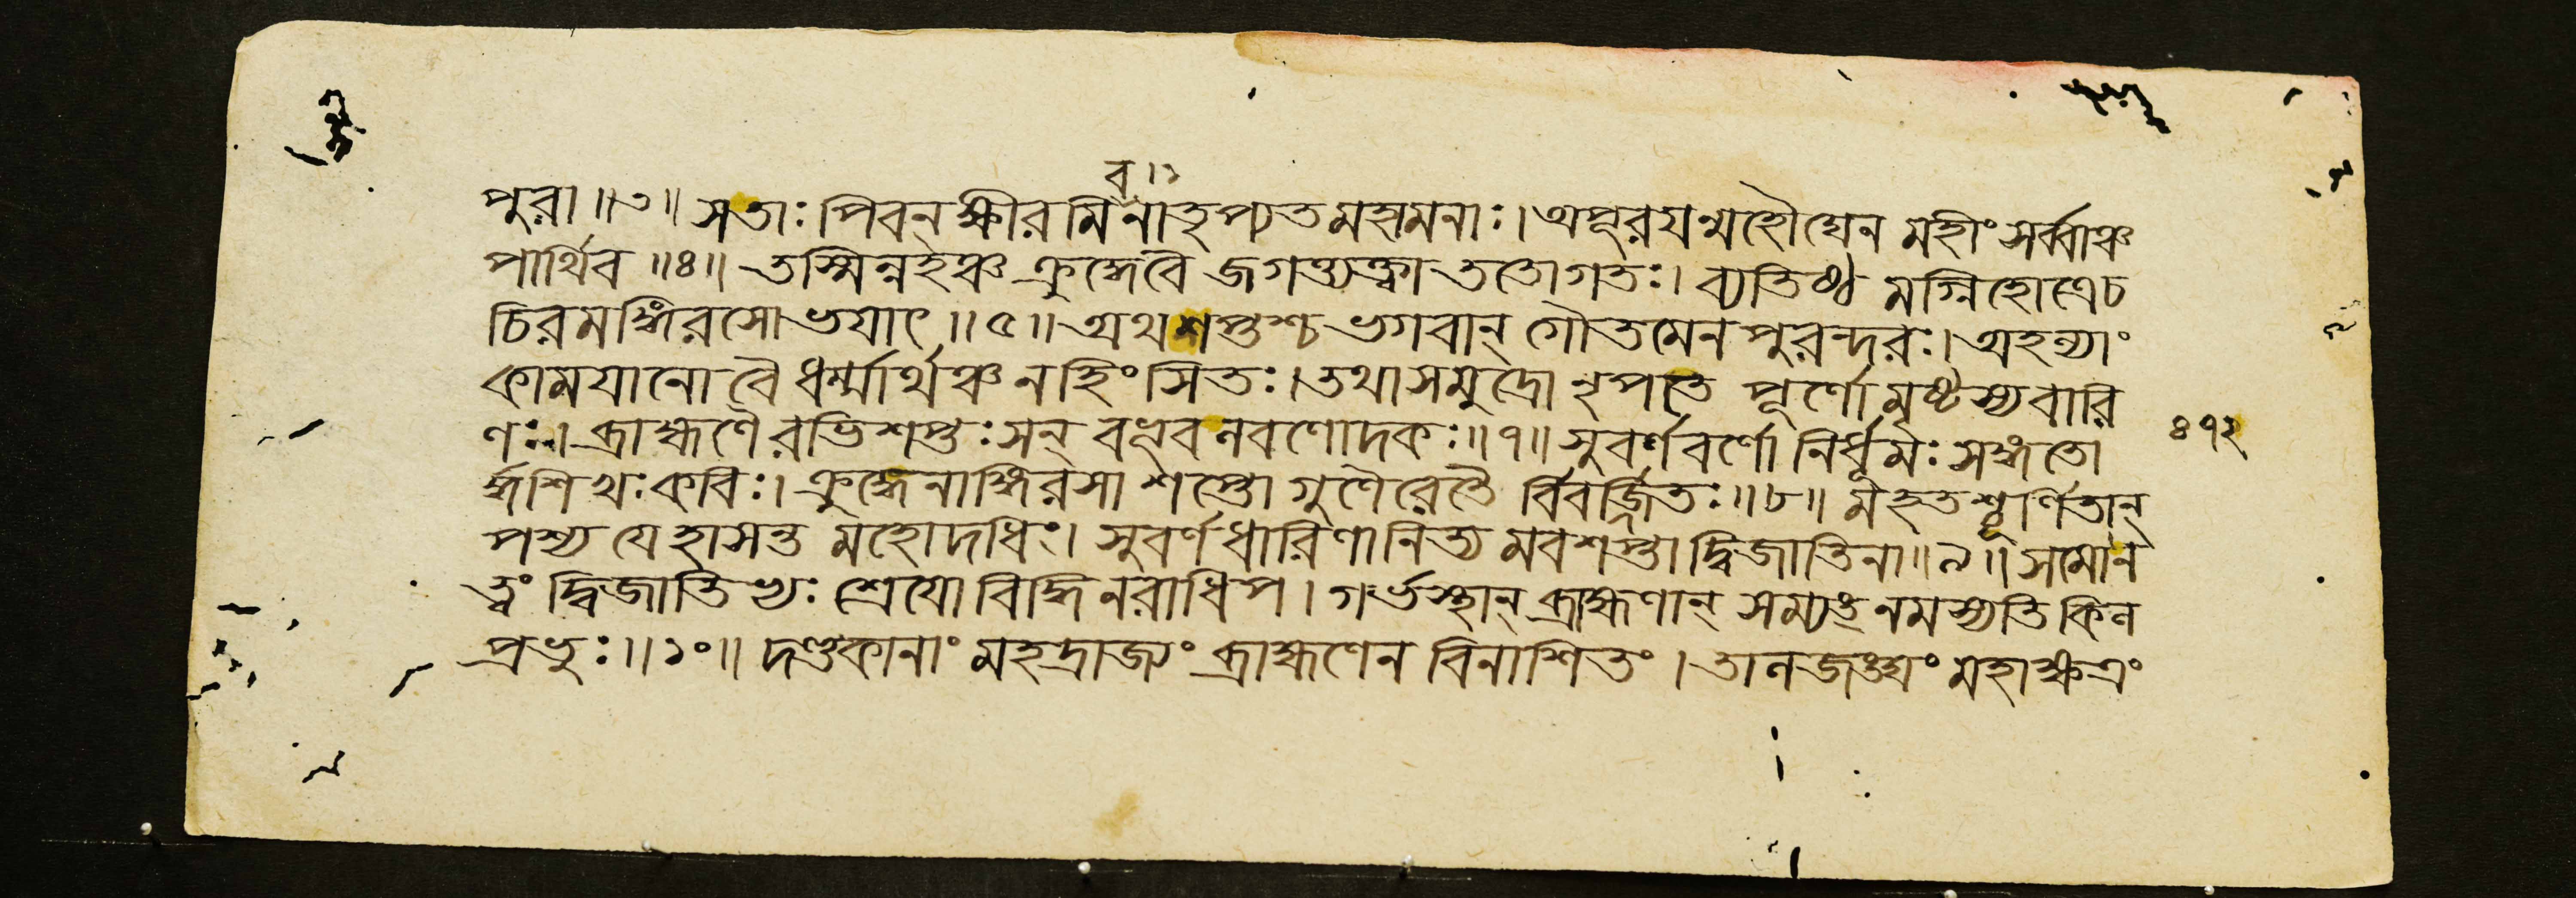 ব ।১
পুরা ॥৩॥ সতাঃ পিবন্ ক্ষীরমিনাতৃপ্যত মহামনাঃ। অপূরযন্মহৌঘেন মহীং সর্ব্বাঞ্চ
পার্থিব ॥৪॥ তস্মিন্নহঞ্চ ক্রুদ্ধে বৈ জগত্ত্যক্ত্বা ততো গতঃ। ব্যতিষ্ঠমগ্নিহোত্রে চ
চিরমঙ্গিরসো ভযাৎ ॥৫॥ অথ শপ্তশ্চ ভগবান্ গৌতমেন পুরন্দরঃ। অহল্যাং
কামযানো বৈ ধর্ম্মার্থঞ্চ ন হিংসিতঃ। তথা সমুদ্রো নৃপতে পূর্ণো মৃষ্টস্য বারি
ণঃ। ব্রাহ্মণৈরভিশপ্তঃ সন্ বভূব লবণোদকঃ ॥৭॥ সুবর্ণবর্ণো নির্ধূমঃ সঙ্গতো
র্দ্ধশিখঃ কবিঃ। ক্রুদ্ধেনাঙ্গিরসা শপ্তো গুণৈরেতৈর্বিবর্জ্জিতঃ ॥৮॥ মহতশ্চূর্ণিতান্
পশ্য যে হাসন্ত মহোদধিং। সুবর্ণধারিণা নিত্যমবশপ্তা দ্বিজাতিনা ॥৯॥ সমো ন
ত্বং দ্বিজাতিভ্যঃ শ্রেযো বিদ্ধি নরাধিপ। গর্ভস্থান্ ব্রাহ্মণান্ সম্যঙ্ নমস্যতি কিল
প্রভুঃ ॥১০॥ দণ্ডকানাং মহদ্রাজ্যং ব্রাহ্মণেন বিনাশিতং। তালজঙ্ঘং মহাক্ষত্রং
৪৭২